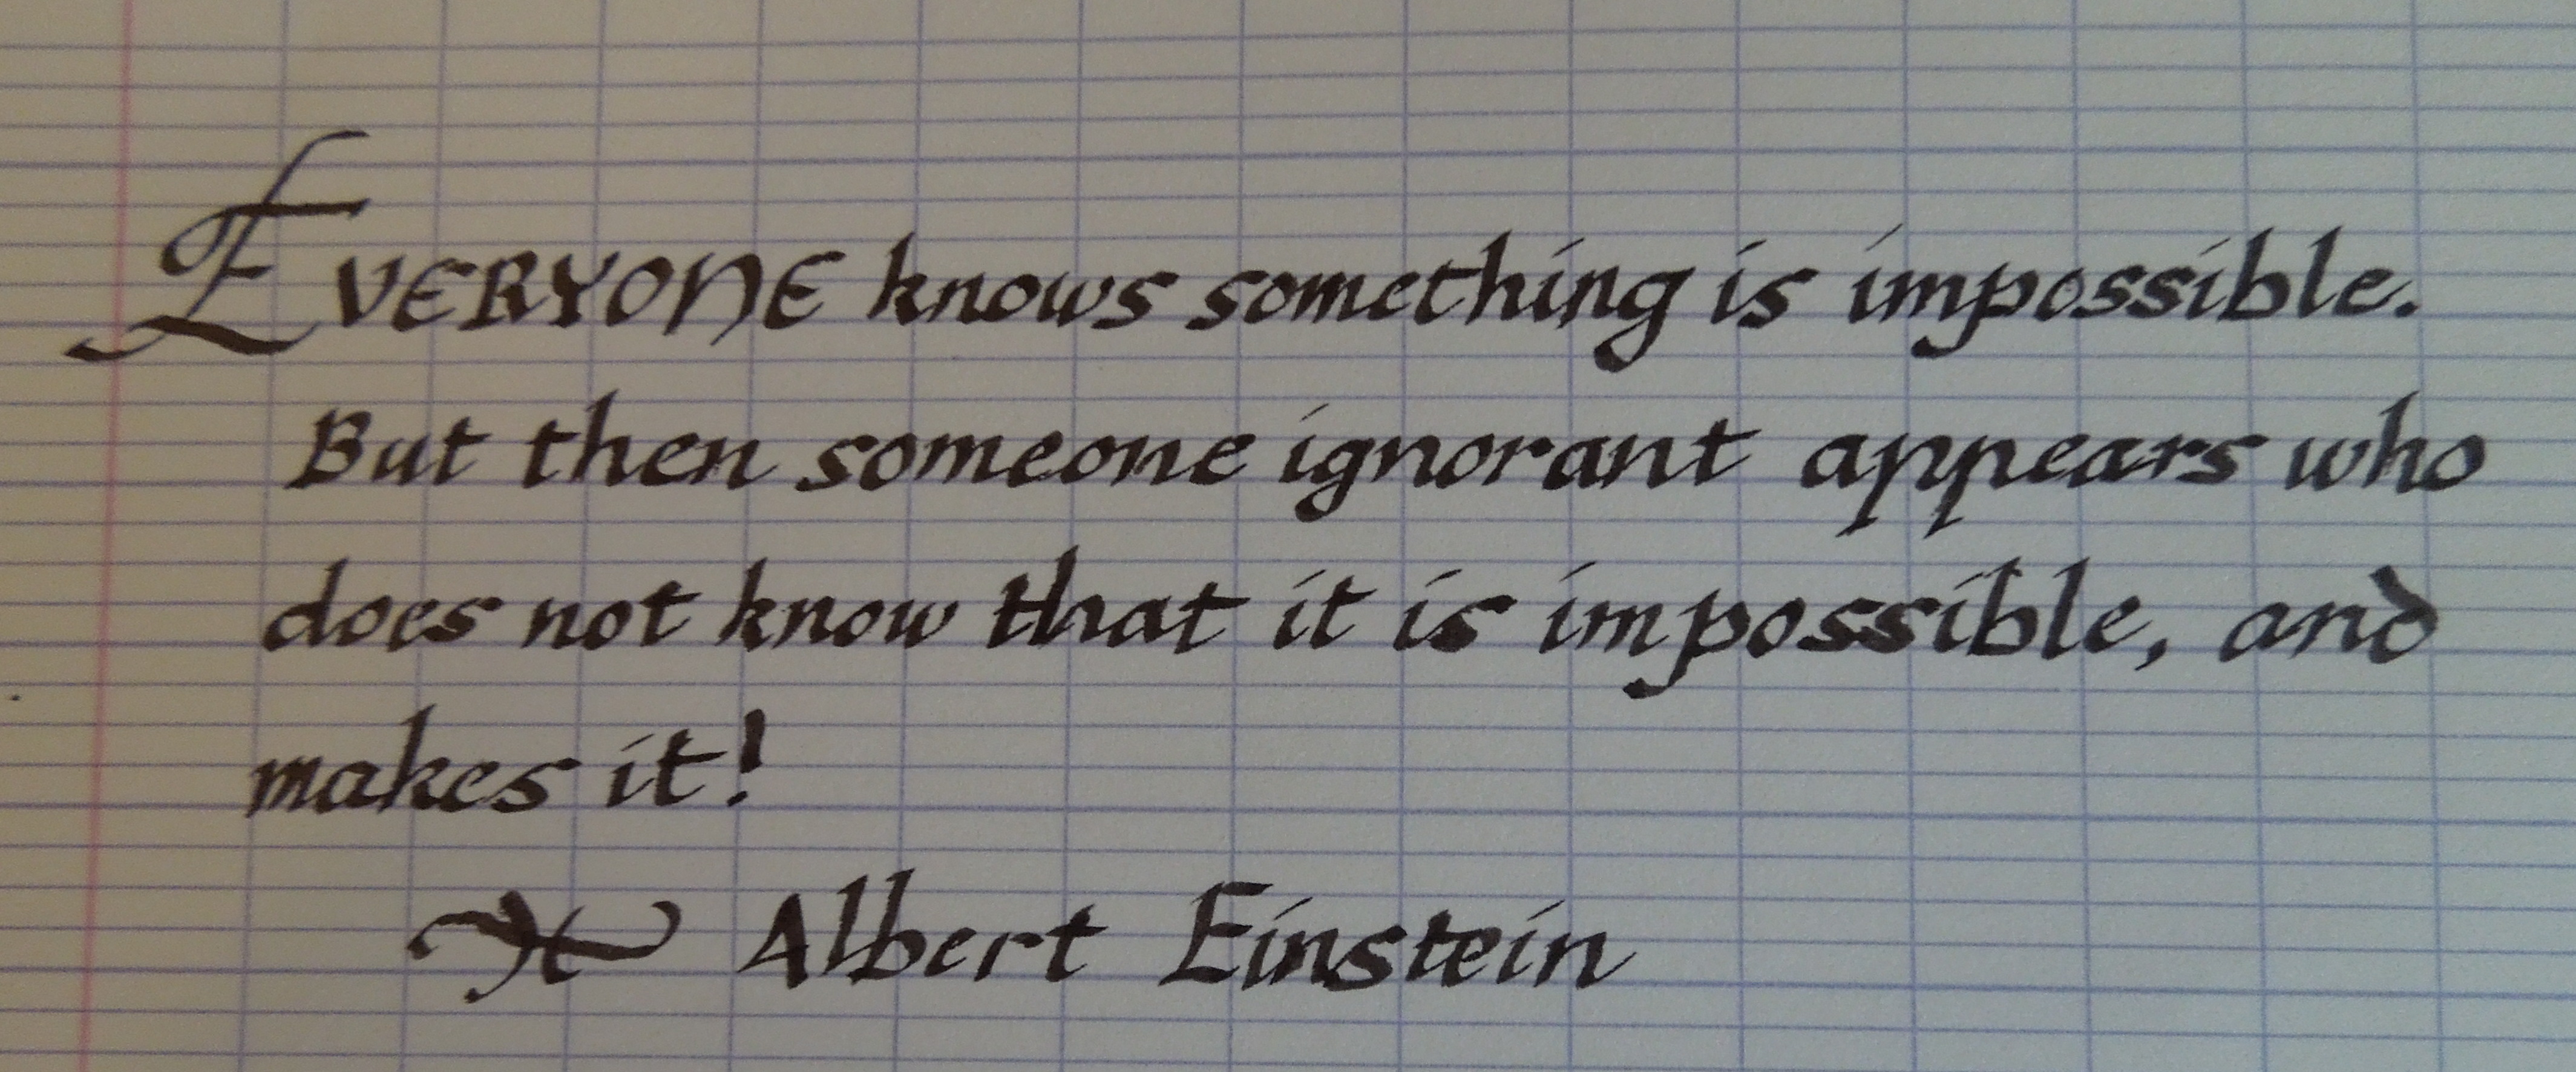 EVERYONE knows something is impossible.
But then someone ignorant appears who
does not know that it is impossible, and
makes it!
Albert Einstein